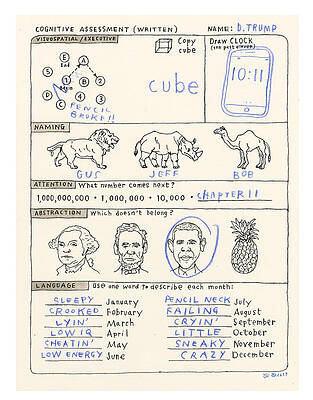 COGNITIVE ASSESSMENT (WRITTEN) NAME: D. TRUMP
VISUOSPATIAL / EXECUTIVE
Copy cube
DRAW CLOCK
(ten past eleven)
E End A
5
B 2
1 Begin
D 4 3
C
PENCIL BROKE!!
cube
10:11
NAMING
GUS JEFF BOB
ATTENTION What number comes next?
1,000,000,000 · 1,000,000 · 10,000 · CHAPTER 11
ABSTRACTION Which doesn't belong?
LANGUAGE Use one word to describe each month:
SLEEPY January
CROOKED February
LYIN' March
LOW IQ April
CHEATIN' May
LOW ENERGY June
PENCIL NECK July
FAILING August
CRYIN' September
LITTLE October
SNEAKY November
CRAZY December